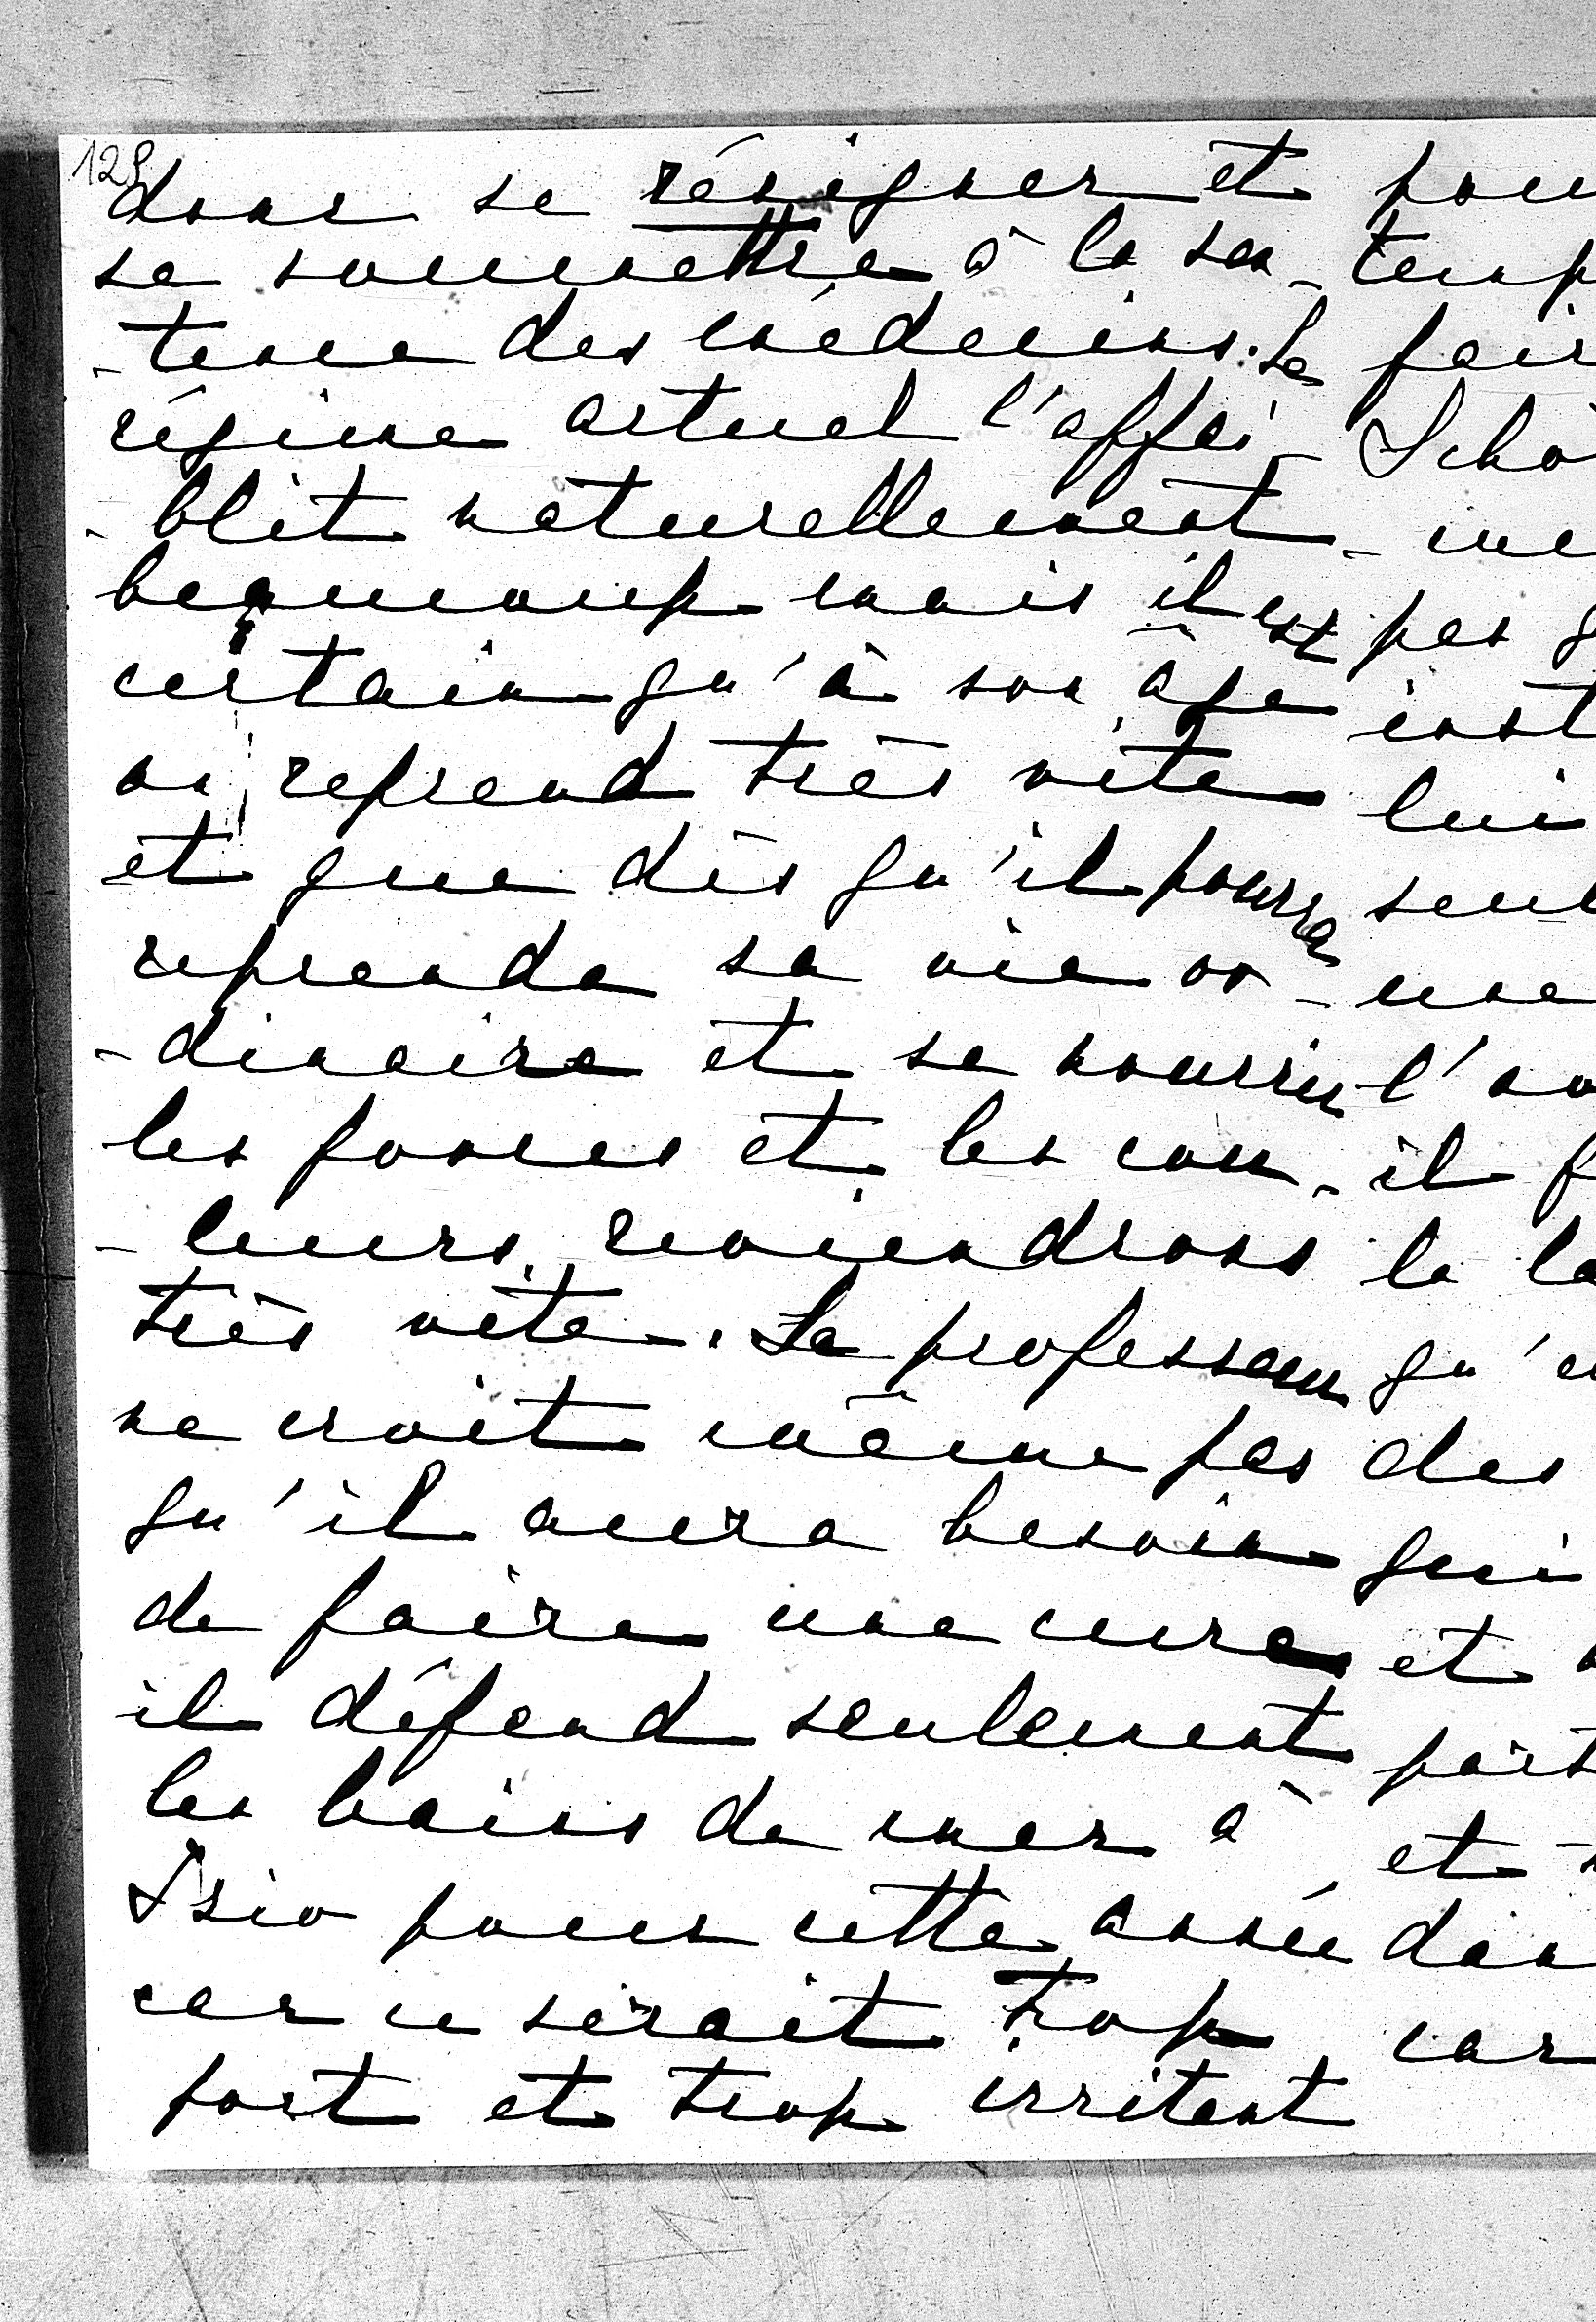 129
donc se résigner et
se soumettre à la sen-
-tence des médecins. Le
régime actuel l'affai-
-blit naturellement
beaucoup mais il est
certain qu'à son âge
on reprend très vite
et que dès qu'il pourra
reprendre sa vie or-
-dinaire et se nourrir
les forces et les cou-
-leurs reviendrons
très vite. Le professeur
ne croit même pas
qu'il aura besoin
de faire une cure
il défend seulement
les bains de mer à
pour cette année
car ce serait trop
fort et trop irritant
pou
temp
fair
Scho
me
pas
inst
lui
seul
une
l'au
il f
le la
qu'e
des
qui
et
et
car